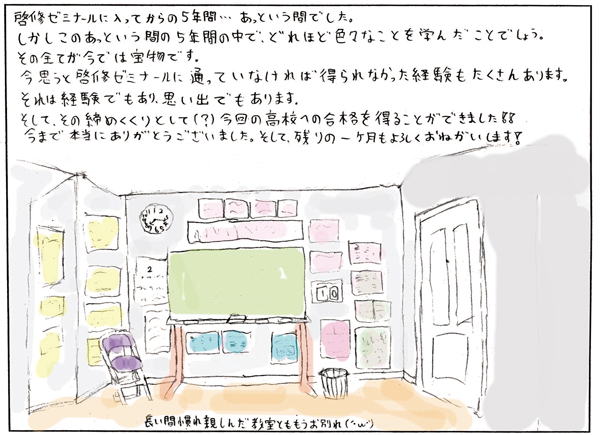 啓修ゼミナールに入ってからの5年間… あっという間でした。
しかしこのあっという間の5年間の中で、どれほど色々なことを学んだことでしょう。
その全てが今では宝物です。
今思うと啓修ゼミナールに通っていなければ得られなかった経験もたくさんあります。
それは経験でもあり、思い出でもあります。
そして、その締めくくりとして(?)今回の高校への合格を得ることができました!!
今まで本当にありがとうございました。そして、残りの一ヶ月もよろしくおねがいします!
2
10
長い間慣れ親しんだ教室とももうお別れ(´・ω・`)